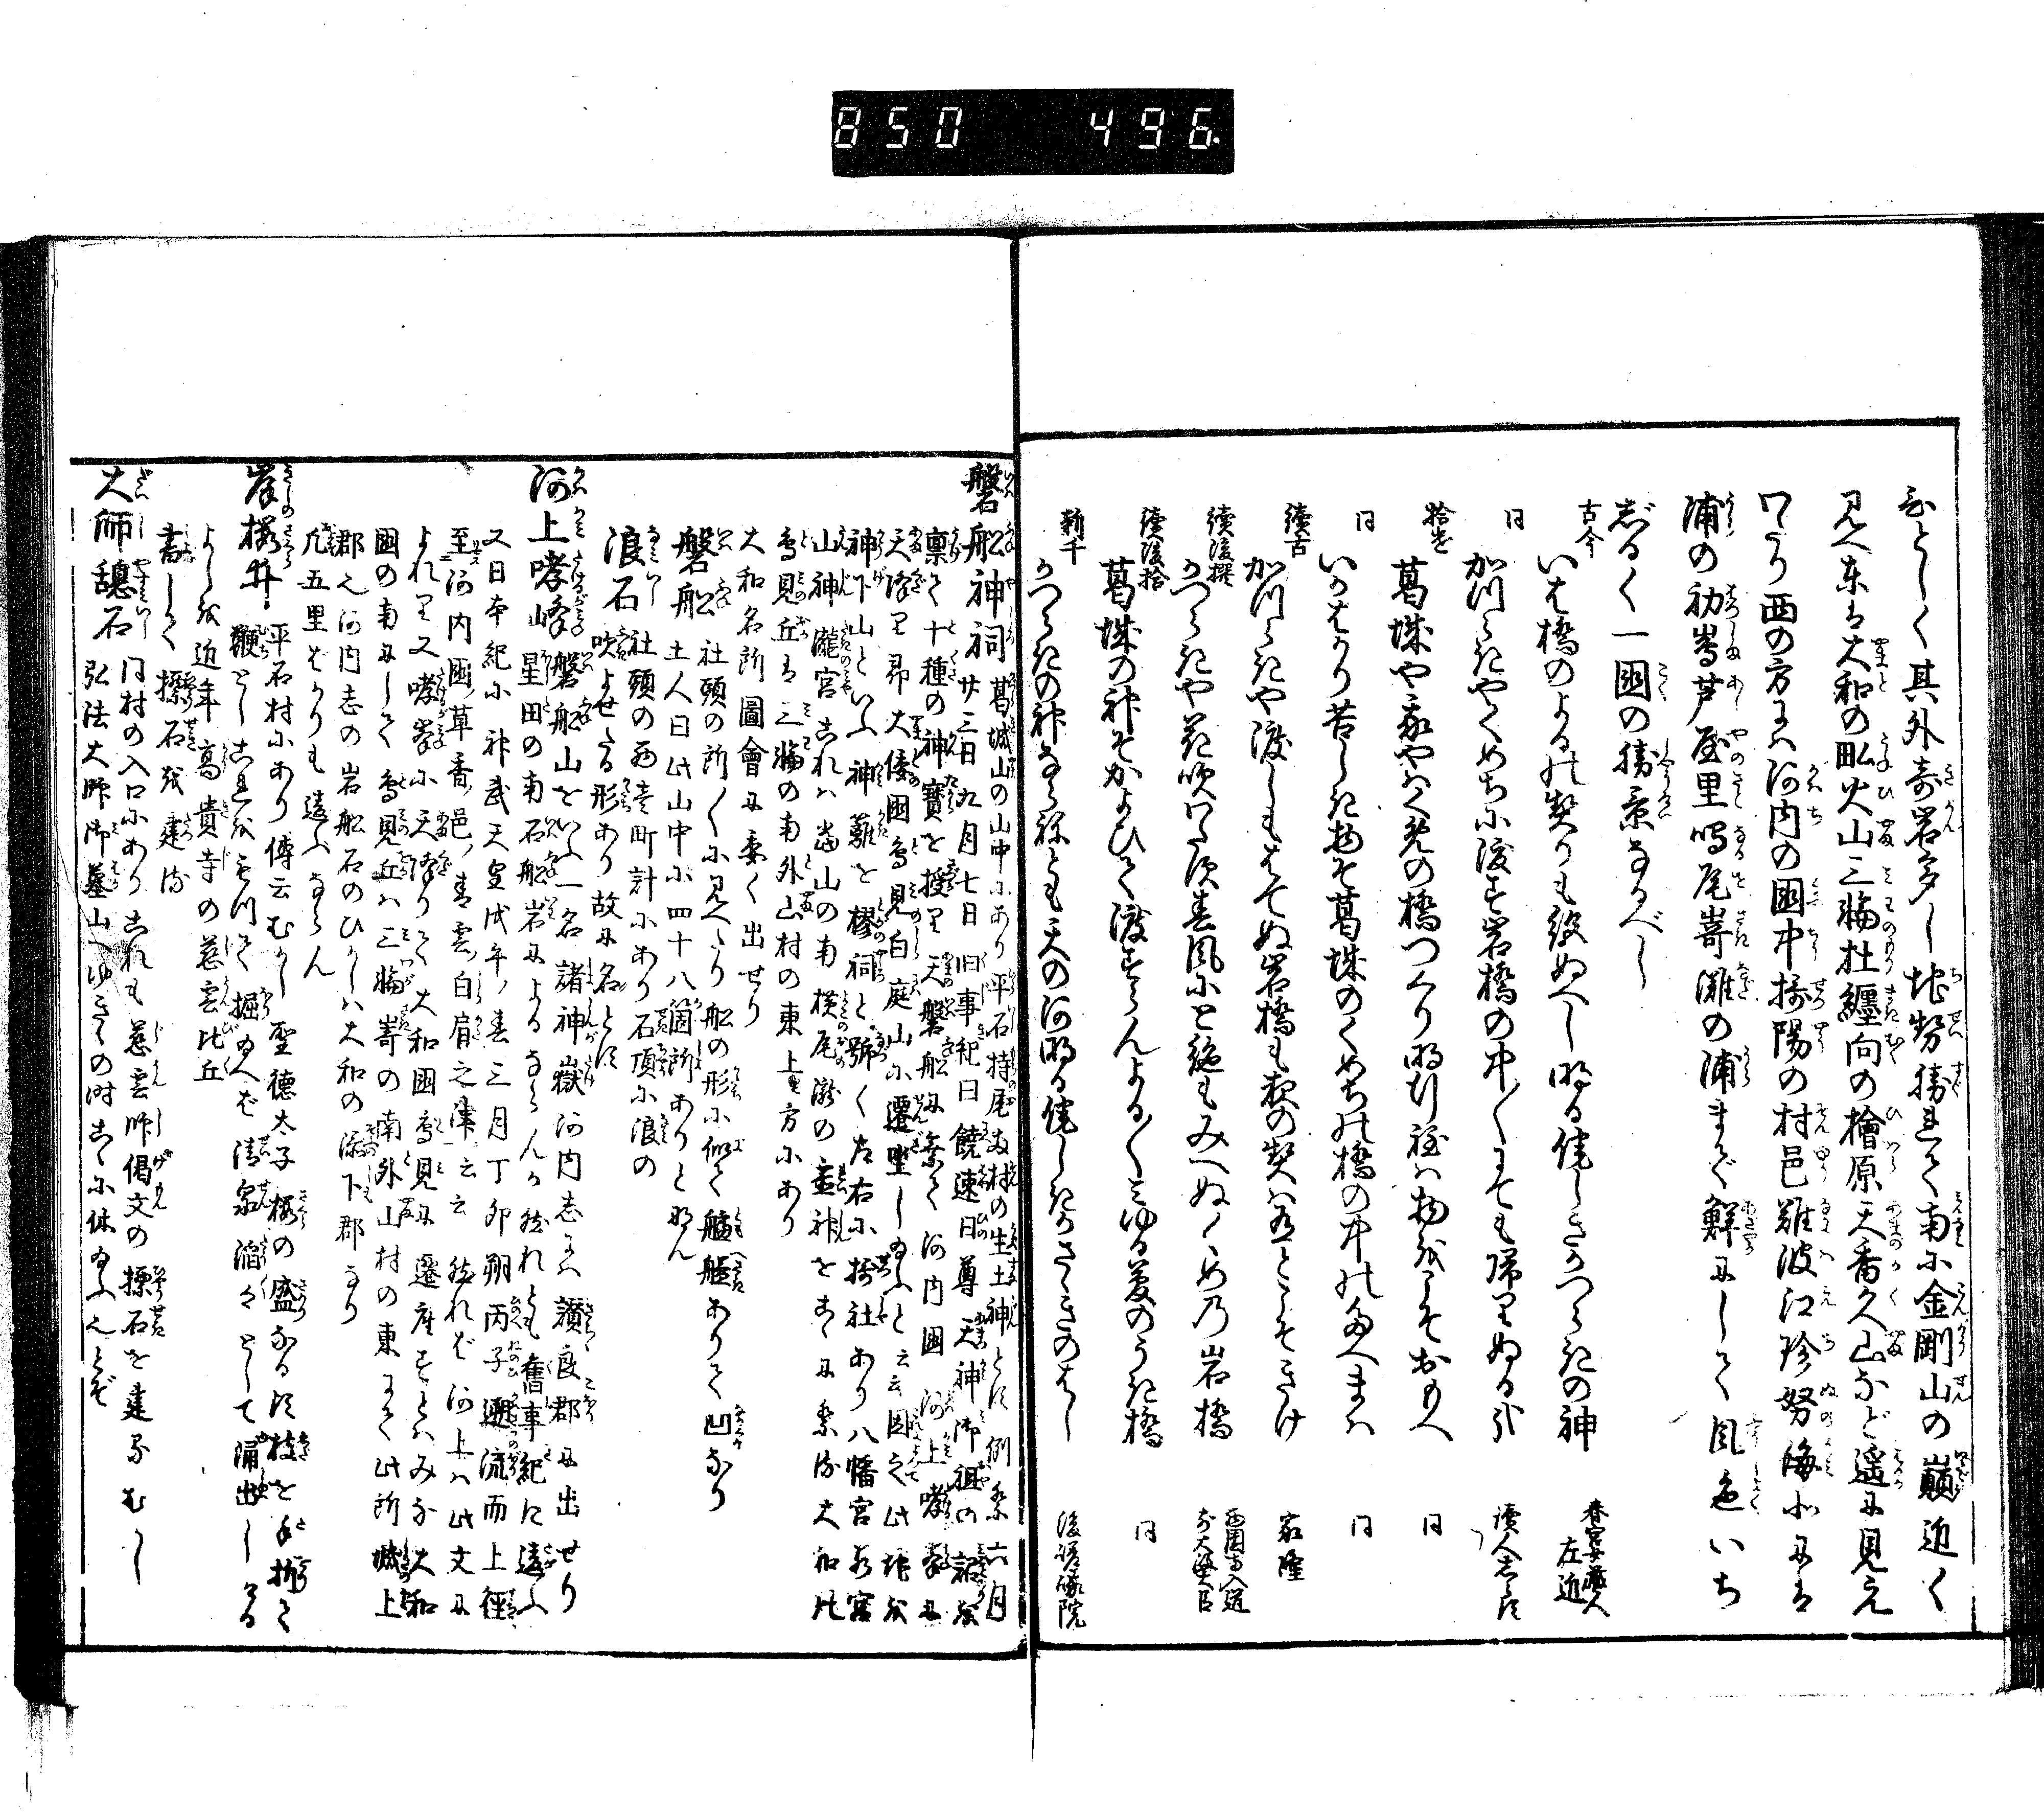 850 496.
ひとしく其外奇岩多し地勢勝れて南に金剛山の巓近く
見へ東は大和の畝火山三輪杜纏向の檜原天香久山など遥に見え
わたり西の方には河内の國中摂陽の村邑難波江珍努海北には
浦の初嶌芦屋里鳴尾嵜灘の浦まで鮮にして風色いち
じるく一國の勝景なるべし
古今 いは橋のよるの契りも絶ぬへし明る侘しきかつらきの神 春宮女蔵人左近
同 かつらきやくめちに渡す岩橋の中〳〵にても帰りぬる哉 読人しらす
拾遺 葛城や我やはくめの橋つくり明行程は物をこそおもへ 同
同 いかはかり苦しき物そ葛城のくめちの橋の中のたへまは 同
續古 かつらきや渡しもはてぬ岩橋も夜の契はありとこそきけ 家隆
續後撰 かつらきや花吹わたす春風にと絶もみへぬくめの岩橋 西園寺入道前太政大臣
續後拾 葛城の神そかよひて渡すらんよる〳〵みゆる夢のうき橋 同
新千 かつらきの神ならねとも天の河明る侘しきかささきのはし 後嵯峨院
磐船神祠 葛城山の山中にあり平石持尾両村の生土神とす例祭六月
廿三日九月七日旧事紀曰饒速日尊天神御祖の詔を
稟て十種の神寶を授り天磐船に乗て河内国河上哮峯に
天降り即大倭国鳥見白庭山に遷坐し給ふと云云因之此地を
神下山といふ神難を樛祠と號く左右に摂社あり八幡宮若宮
山神瀧宮これは嵩山の南横尾瀧の靈神をこゝに祭る大和の
鳥見丘は三輪の南外山村の東上方にあり
大和名所圖會に委く出せり
磐船 社頭の所〳〵に見へたり船の形に似て艫舳ありて凹なり
土人曰此山中に四十八箇所ありとなん
浪石 社頭の西壱町計にあり石頂に浪の
吹よせたる形あり故に名とす
河上哮峰 磐船山といふ一名諸神嶽河内志には讃良郡に出せり
星田の南石船岩によるならんか然れども舊事紀に違ふ
又日本紀に神武天皇戊午ノ春三月丁卯朔丙子遡流而上径
至河内國草香ノ邑ノ青雲ノ白肩之津云云然れば河上は此文に
よれり又哮峯に天降りて大和国鳥見に遷座すとはみな大和
國の南にして鳥見丘は三輪嵜の南外山村の東にて此所城上
郡也河内志の岩船石のひがしは大和の添下郡なり
凡五里ばかりも違ふならん
岸桜井 平石村にあり傳云むかし聖徳太子桜の盛なる頃枝を手折て
鞭としこれをもつて掘給へば清泉滔々として涌出しける
よしを近年高貴寺の慈雲比丘
書して標石を建る
大師憩石 同村の入口にありこれも慈雲師偈文の標石を建るむかし
弘法大師御墓山へゆきゝの時こゝに休給ふ也とぞ